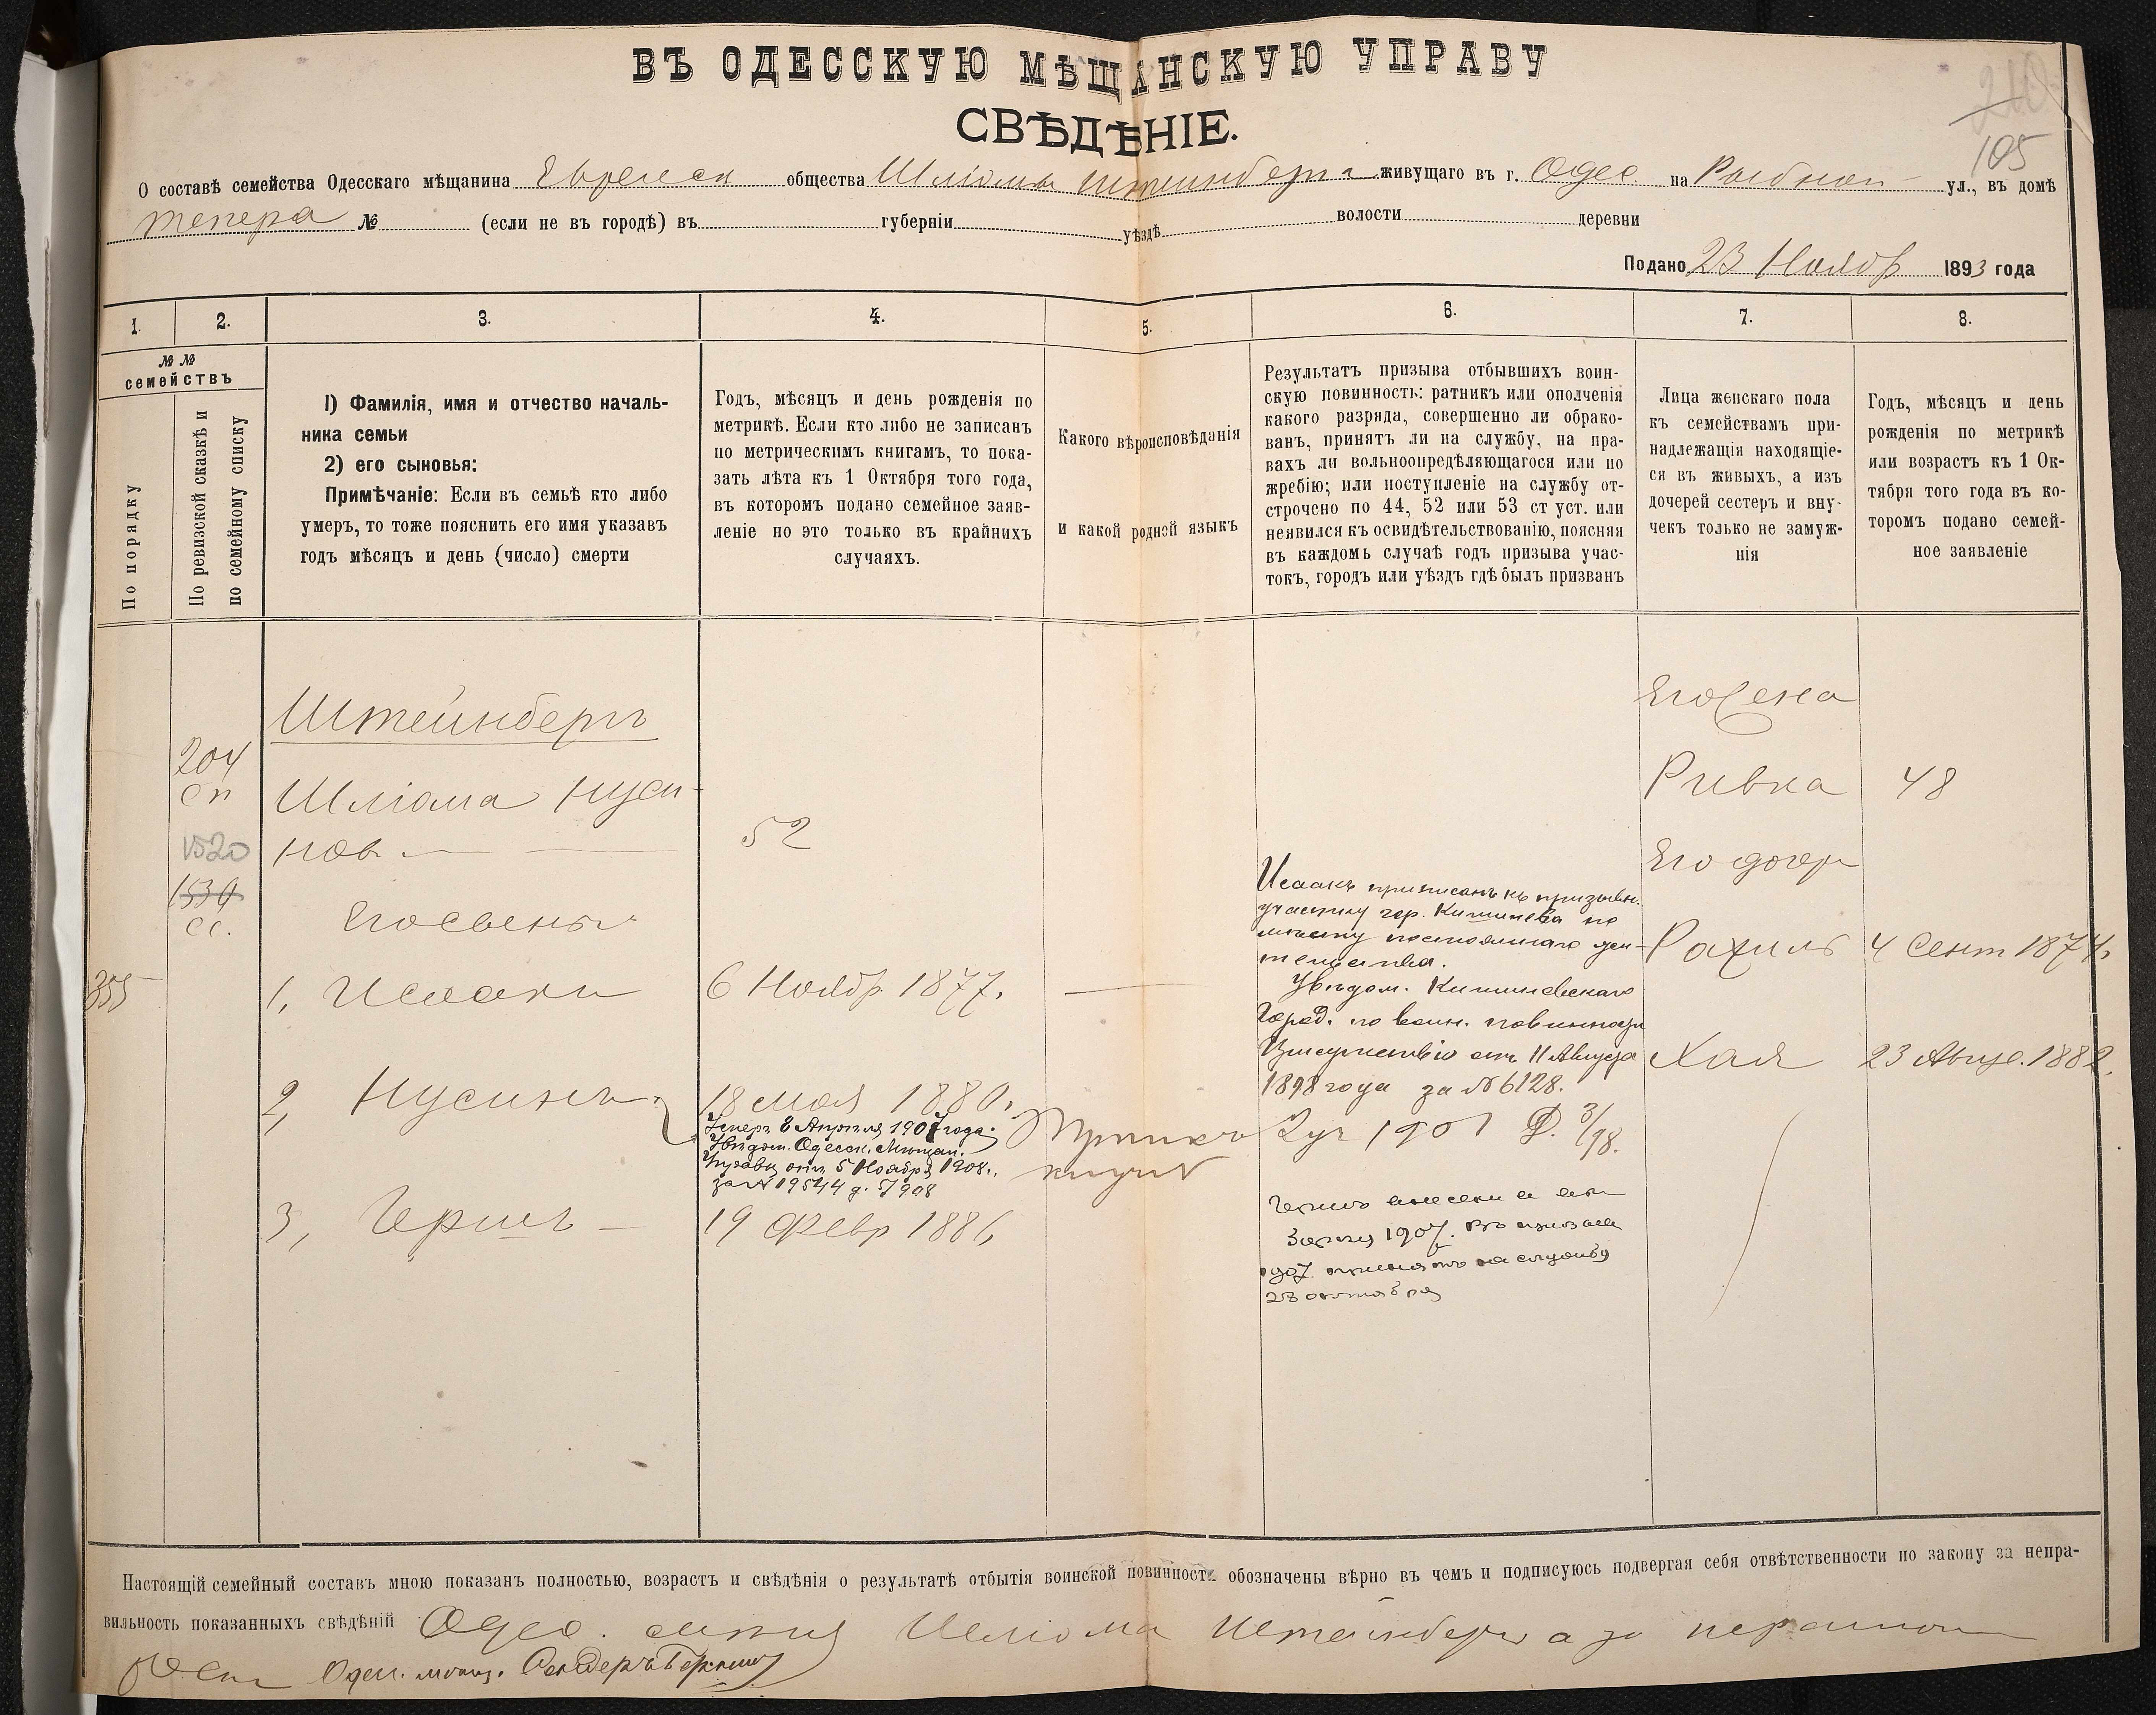 ВЪ ОДЕССКУЮ МѢЩАНСКУЮ УПРАВУ
СВѢДѢНІЕ.
210
105
О составѣ семейства Одесскаго мѣщанина Еврейск общества Шліомы Штейнберга живущаго въ г. Одес. на Рыбной ул., въ домѣ
Тепера № (если не въ городѣ) въ губерніи уѣздѣ волости деревни
Подано 23 Ноябр 1893 года
1. 2. 3. 4. 5. 6. 7. 8.
№ №
семействъ
По порядку
По ревизской сказкѣ и
по семейному списку
1) Фамилія, имя и отчество началь-
ника семьи
2) его сыновья:
Примѣчаніе: Если въ семьѣ кто либо
умеръ, то тоже пояснить его имя указавъ
годъ мѣсяцъ и день (число) смерти
Годъ, мѣсяцъ и день рожденія по
метрикѣ. Если кто либо не записанъ
по метрическимъ книгамъ, то пока-
зать лѣта къ 1 Октября того года,
въ которомъ подано семейное заяв-
леніе но это только въ крайнихъ
случаяхъ.
Какого вѣроисповѣданія
и какой родной языкъ
Результатъ призыва отбывшихъ воин-
скую повинность: ратникъ или ополченія
какого разряда, совершенно ли обрако-
ванъ, принятъ ли на службу, на пра-
вахъ ли вольноопредѣляющагося или по
жребію; или поступленіе на службу от-
строчено по 44, 52 или 53 ст уст. или
неявился къ освидѣтельствованію, поясняя
въ каждомъ случаѣ годъ призыва учас-
токъ, городъ или уѣздъ гдѣ былъ призванъ
Лица женскаго пола
къ семействамъ при-
надлежащія находящіе-
ся въ живыхъ, а изъ
дочерей сестеръ и вну-
чекъ только не замуж-
нія
Годъ, мѣсяцъ и день
рожденія по метрикѣ
или возрастъ къ 1 Ок-
тября того года въ ко-
торомъ подано семей-
ное заявленіе
Штейнбергъ
204
сп
1520
1534
сс.
355
Шліома Нуси-
нов
52
Его сыны
1, Исаакъ
6 Ноябр 1877.
2, Нусинъ
18 мая 1880.
Умеръ 8 Апрѣля 1907 года.
Увѣдом. Одесск. Мѣщан.
Управы отъ 5 Ноября 1908 г.
за № 19544
3, Гершъ
19 Февр 1886
Исаакъ приписанъ къ призывн.
участку гор. Кишинева по
мѣсту постояннаго жи-
тельства.
Увѣдом. Кишиневскаго
Город. по воин. повинности
Присутствія отъ 11 Августа
1898 года за № 6128.
2 уч 1901 Д. 3/98.
Гершъ внесенъ въ
1907. Въ призывъ
907. принятъ на службу
28 октября
Его жена
Ривка 48
Его дочери
Рахиль 4 Сент 1874.
Хая 23 Авгус. 1882.
Настоящій семейный составъ мною показанъ полностью, возрастъ и свѣдѣнія о результатѣ отбытія воинской повинности обозначены вѣрно въ чемъ и подписуюсь подвергая себя отвѣтственности по закону за непра-
вильность показанныхъ свѣдѣній Одес. мѣщ. Шліома Штейнбергъ а за неграмотн
Одес. мѣщ.